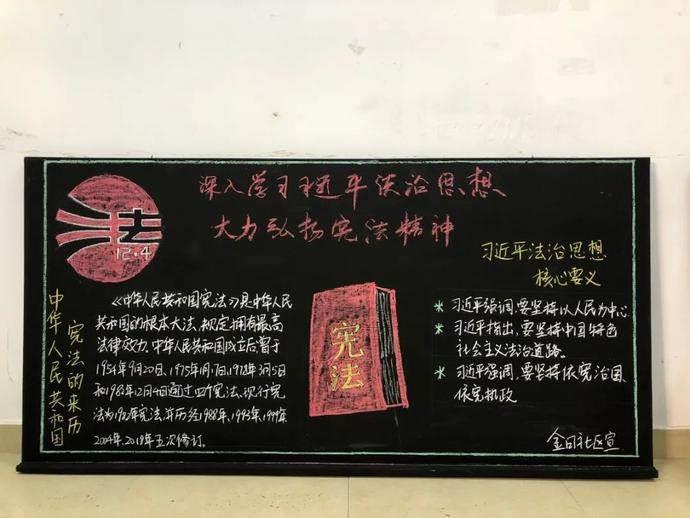 深入学习习近平法治思想
大力弘扬宪法精神
法
12·4
中华人民共和国
宪法的来历
《中华人民共和国宪法》是中华人民
共和国的根本大法,规定拥有最高
法律效力.中华人民共和国成立后曾于
1954年9月20日、1975年1月17日、1978年3月5日
和1982年12月4日通过四个宪法、现行宪
法为1982年宪法,并历经1988年、1993年、1999年
2004年、2018年五次修订.
宪法
习近平法治思想
核心要义
* 习近平强调,要坚持以人民为中心
* 习近平指出,要坚持中国特色
社会主义法治道路.
* 习近平强调,要坚持依宪治国、
依宪执政
社区宣